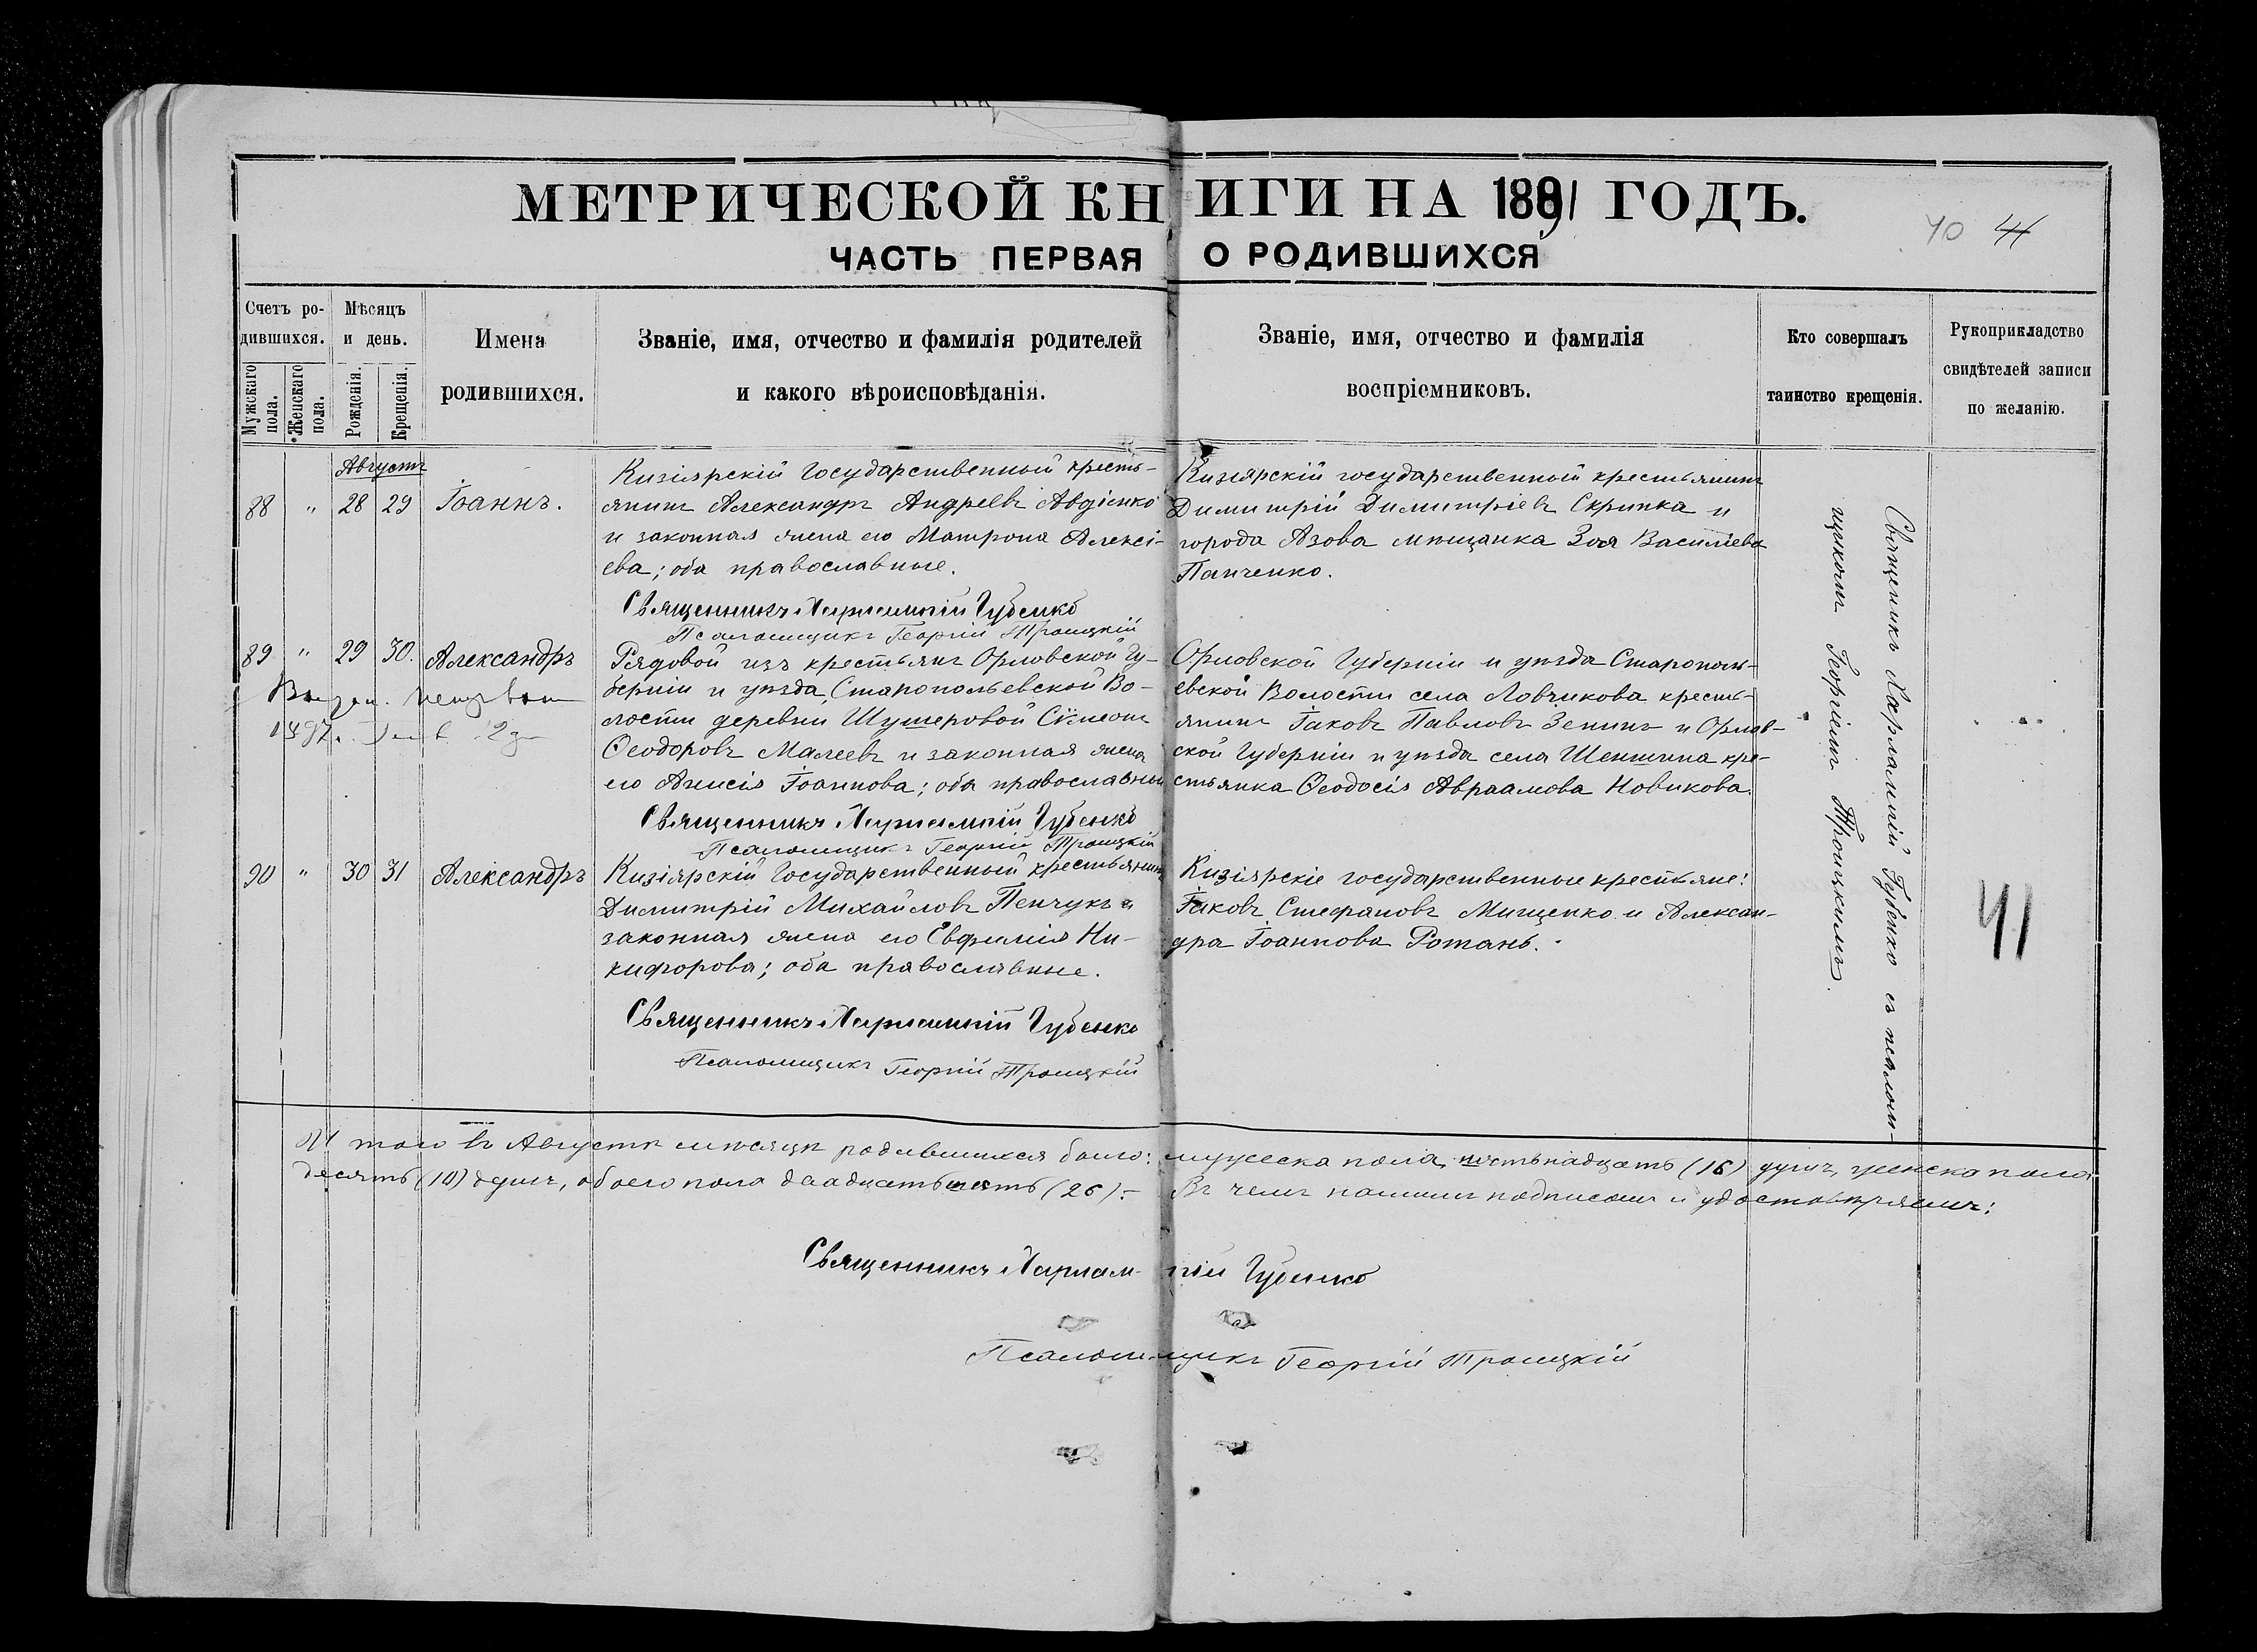 МЕТРИЧЕСКОЙ КНИГИ НА 1891 ГОДЪ.
ЧАСТЬ ПЕРВАЯ О РОДИВШИХСЯ
40 41
Счетъ ро-
дившихся.
Мужскаго пола.
Женскаго пола.
Мѣсяцъ
и день.
Рожденія.
Крещенія.
Имена
родившихся.
Званіе, имя, отчество и фамилія родителей
и какого вѣроисповѣданія.
Званіе, имя, отчество и фамилія
воспріемниковъ.
Кто совершалъ
таинство крещенія.
Рукоприкладство
свидѣтелей записи
по желанію.
Августъ
88 " 28 29 Іоаннъ.
Кизіярскій Государственный кресть-
янинъ Александръ Андреевъ Авдіенко
и законная жена его Матрона Алексі-
ева; оба православные.
Священникъ Харлампій Губенко
Псаломщикъ Георгій Троицкій
Кизіярскій государственный крестьянинъ
Димитрій Димитріевъ Скрипка и
города Азова мѣщанка Зоя Василіева
Панченко.
89 " 29 30. Александръ
1897г.
Рядовой изъ крестьянъ Орловской Гу-
берніи и уѣзда, Старопольевской Во-
лости деревни Шушеровой Сѵмеонъ
Ѳеодоровъ Малеевъ и законная жена
его Анисія Іоаннова; оба православные
Священникъ Харлампій Губенко
Псаломщикъ Георгій Троицкій
Орловской Губерніи и уѣзда Старополь-
евской Волости села Ловчикова кресть-
янинъ Іаковъ Павловъ Зенинъ и Орлов-
ской Губерніи и уѣзда села Шеншина кре-
стьянка Ѳеодосія Авраамова Новикова.
90 " 30 31 Александръ
Кизіярскій Государственный крестьянинъ
Димитрій Михайловъ Пенчукъ и
законная жена его Евфимія Ни-
кифорова; оба православные.
Священникъ Харлампій Губенко
Псаломщикъ Георгій Троицкій
Кизіярскіе государственные крестьяне:
Іаковъ Стефановъ Мищенко и Алексан-
дра Іоаннова Ротань.
Священникъ Харлампій Губенко съ псалом-
щикомъ Георгіемъ Троицкимъ.
41
И того въ Августѣ мѣсяцѣ родившихся было: мужеска пола шестьнадцать (16) душъ, женска пола
десять (10) душъ, обоего пола двадцать шесть (26).- Въ чемъ нашимъ подписомъ и удостовѣряемъ:
Священникъ Харлампій Губенко
Псаломщикъ Георгій Троицкій